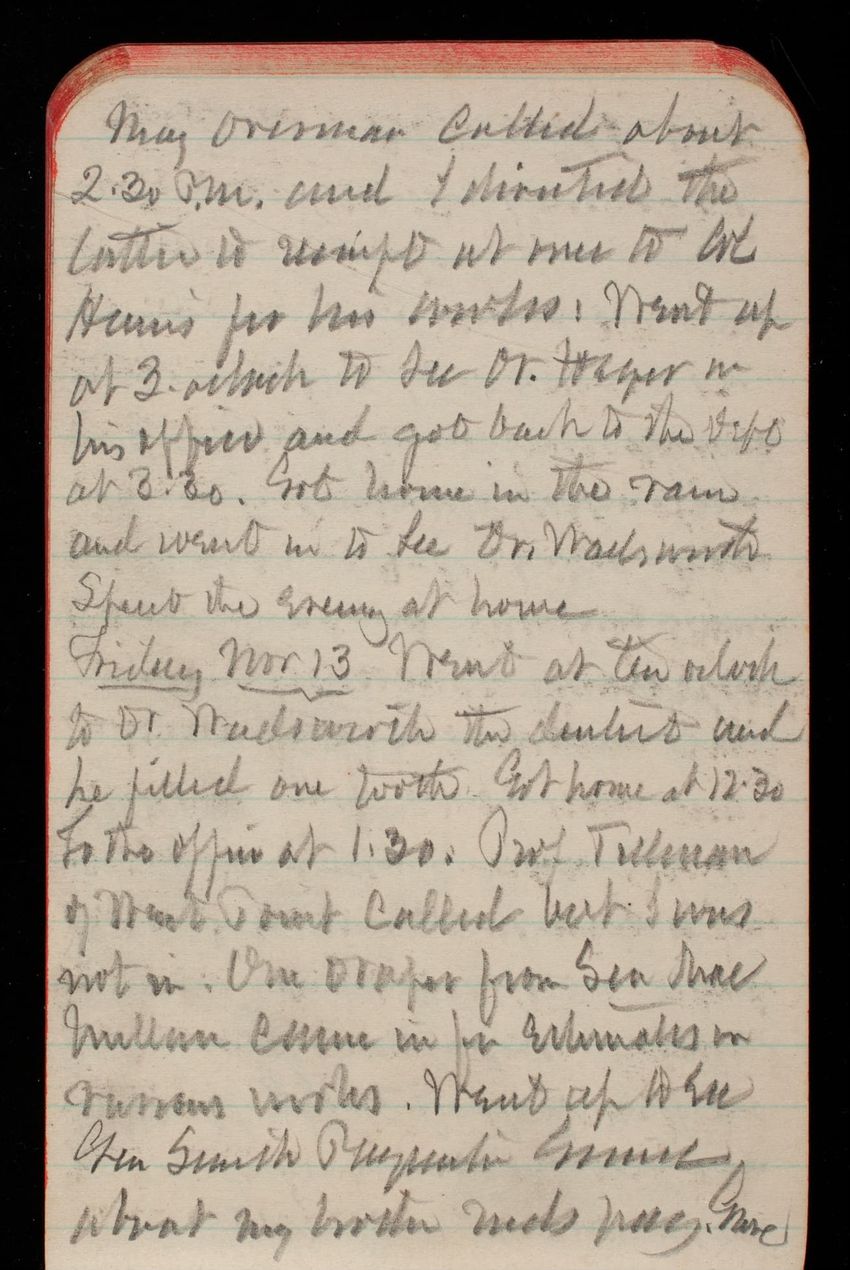 Maj Overman called about
2.30 P.M. and I directed the
latter to receipt at once to Col
for his works. Went up
at 3. oclock to see Dr. Hager in
his office and got back to the Dept
at 3.30. Got home in the rain
and went in to see Dr. Wadsworth
Spent the evening at home
Friday Nov 13 Went at ten oclock
to Dr. Wadsworth the dentist and
he filled one tooth. Got home at 12.30
To the office at 1.30. Prof. Tillman
of West Point called but I was
not in. One Draper from Gen Mac
came in for Estimates on
various works. Went up to see
Gen Smith Paymaster General
about my brother neds pay. Mrs